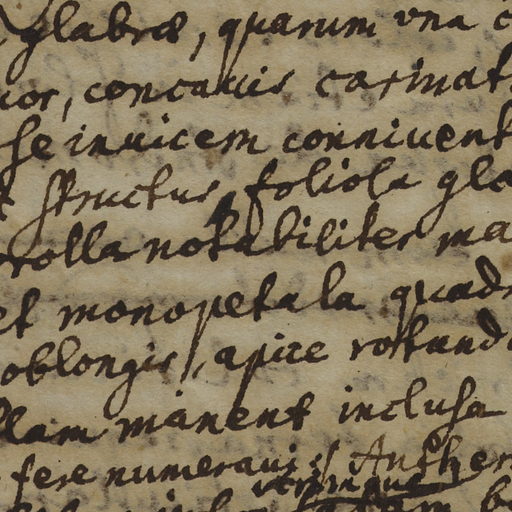 glabræ, quarum una c
uor, concavis carinat
se invicem connivent
structus, foliola gla
rolla notabiliter ma
et monopetala quadr
oblongis, apice rotunda
llam manent inclusa
fere numeravi Anther